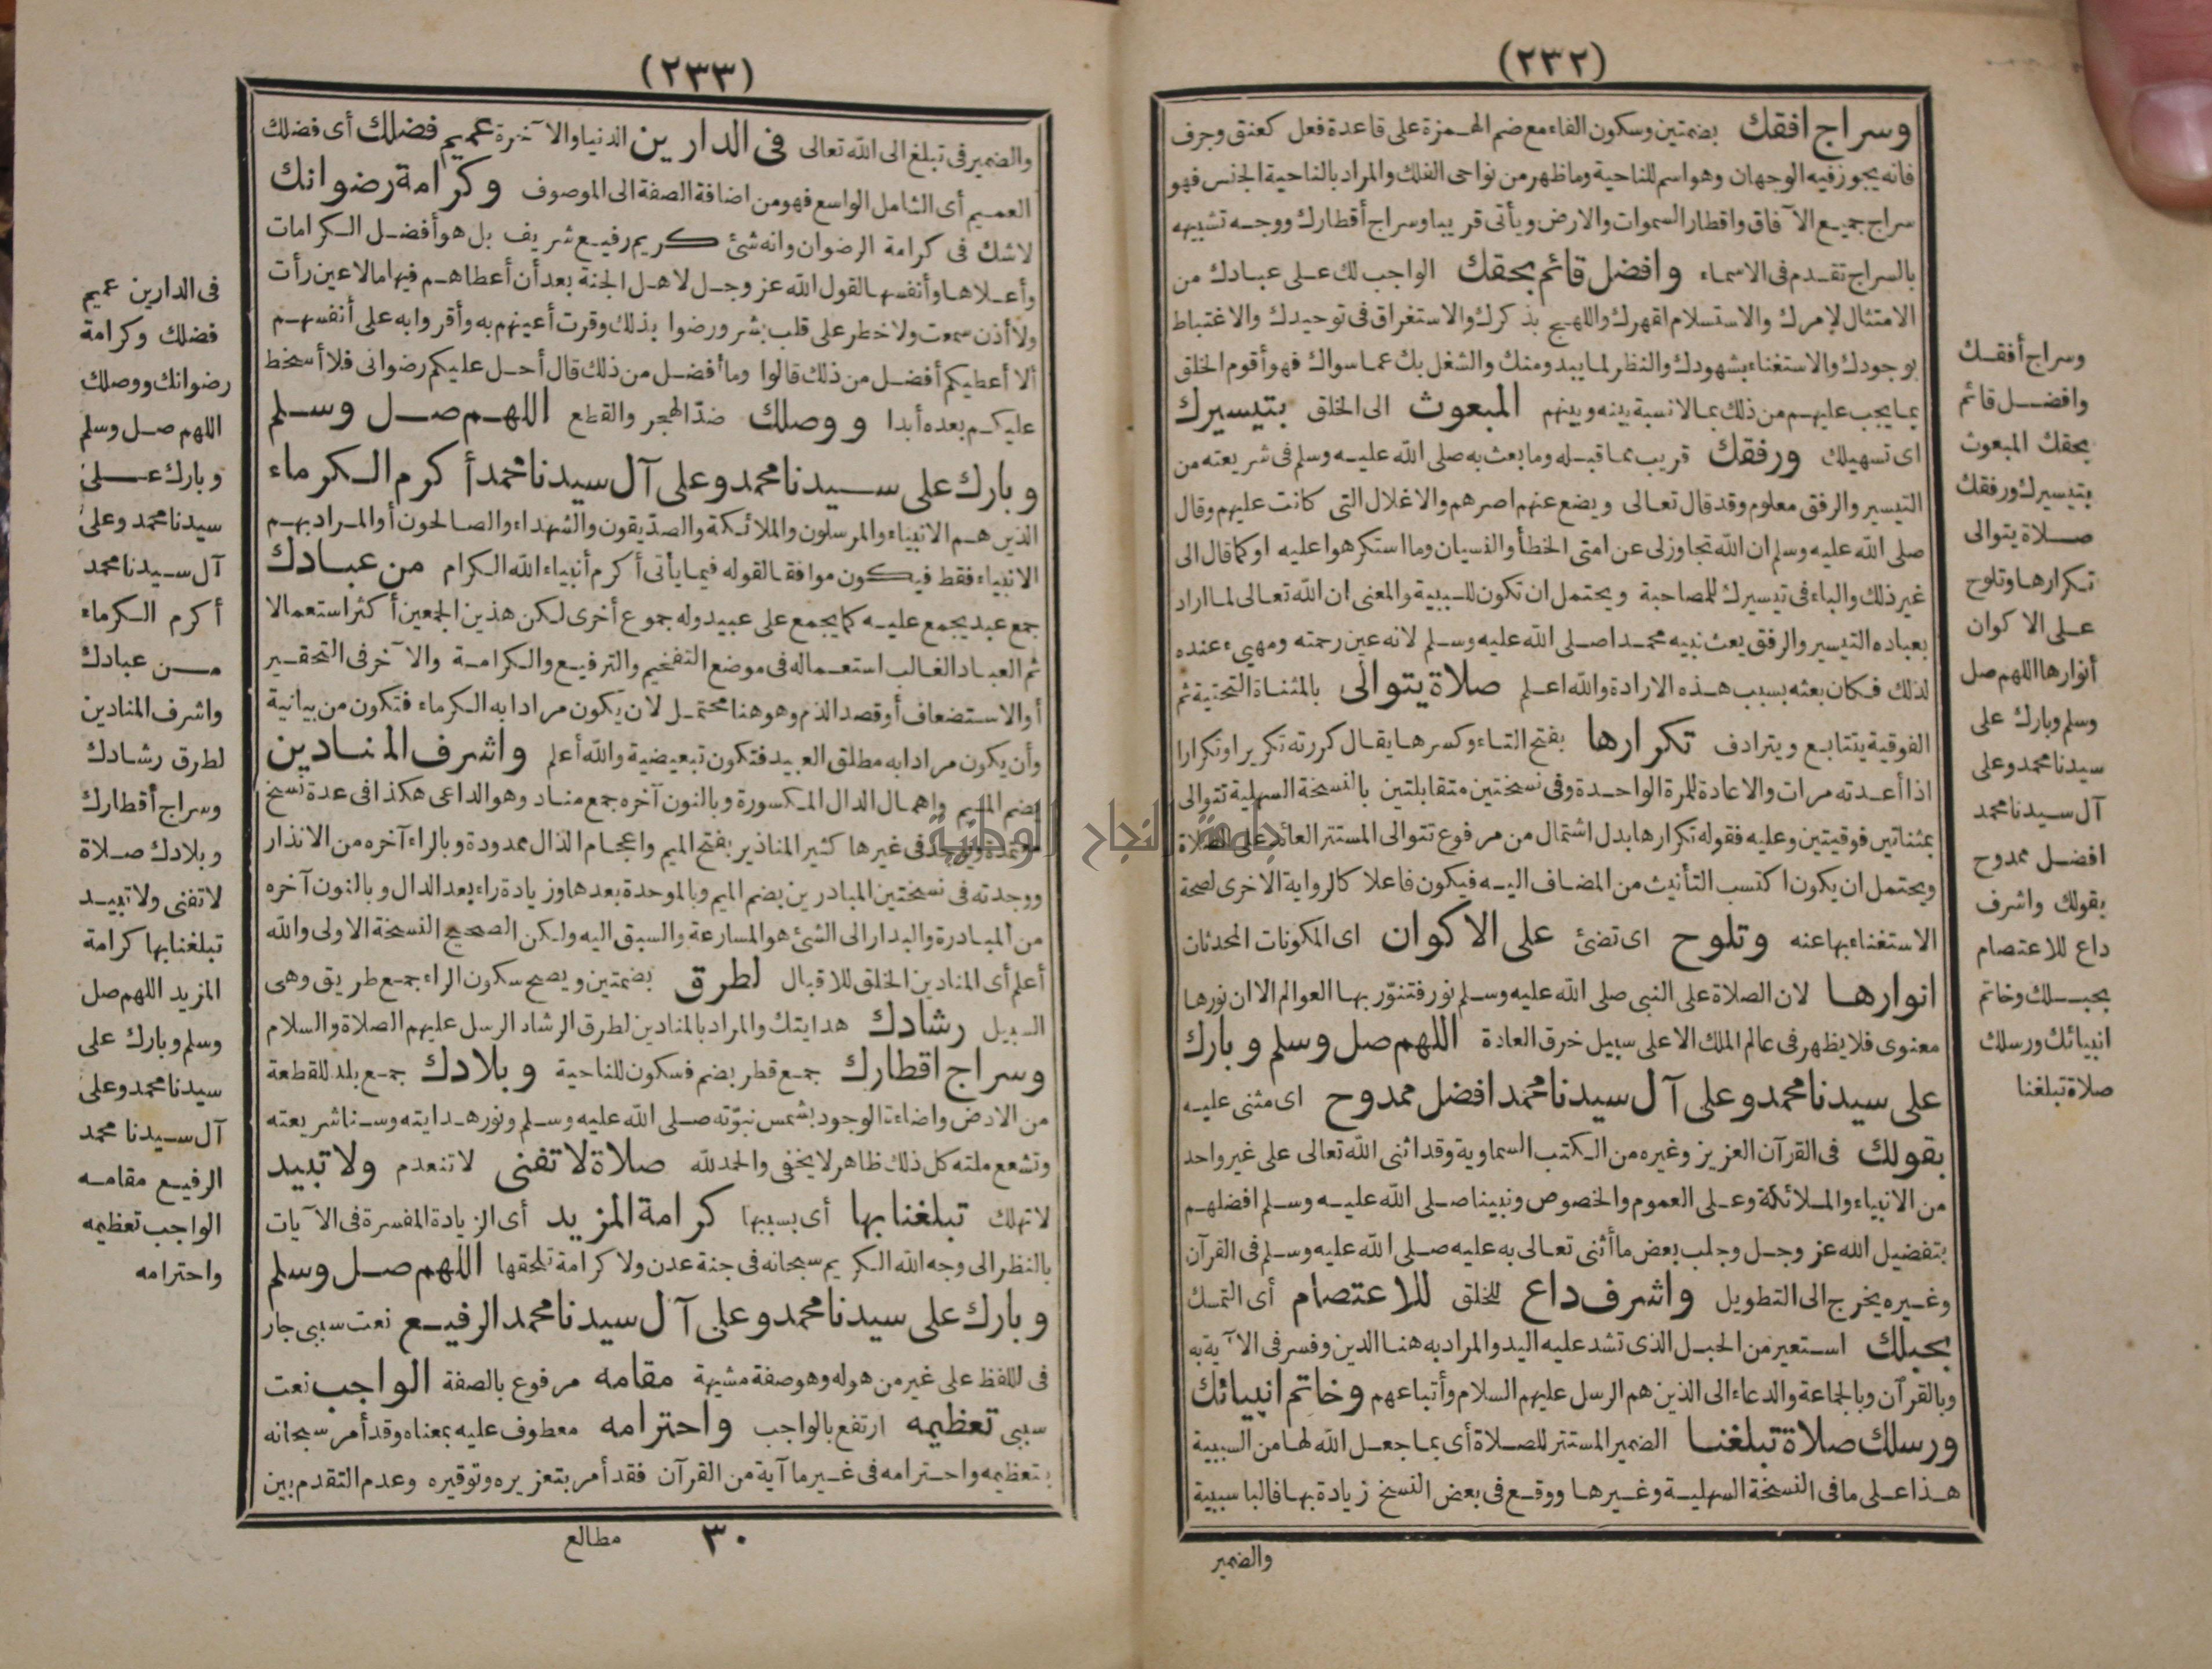 (٢٣٢)
وسراج افقك بضمتين وسكون الفاء مع ضم الهمزة على قاعدة فعل كعنق وجرف
فانه يجوز فيه الوجهان وهو اسم للناحية وما ظهر من نواحى الفلك والمراد بالناحية الجنس فهو
سراج جميع الآفاق واقطار السموات والارض ويأتى قريبا وسراج أقطارك ووجه تشبيهه
بالسراج تقدم فى الاسماء وافضل قائم بحقك الواجب لك على عبادك من
الامتثال لإمرك والاستسلام لقهرك واللهج بذكرك والاستغراق فى توحيدك والاغتباط
بوجودك والاستغناء بشهودك والنظر لما يبدو منك والشغل بك عما سواك فهو أقوم الخلق
بما يجب عليهم من ذلك بما لا نسبة بينه وبينهم المبعوث الى الخلق بتيسيرك
اى تسهيلك ورفقك قريب مما قبله وما بعث به صلى الله عليه وسلم فى شريعته من
التيسير والرفق معلوم وقد قال تعالى ويضع عنهم اصرهم والاغلال التى كانت عليهم وقال
صلى الله عليه وسلم ان الله تجاوز لى عن امتى الخطأ والنسيان وما استكرهوا عليه او كما قال الى
غير ذلك والباء فى تيسيرك للمصاحبة ويحتمل ان تكون للسببية والمعنى ان الله تعالى لما اراد
بعباده التيسير والرفق بعث نبيه محمدا صلى الله عليه وسلم لانه عين رحمته ومهيىء عنده
لذلك فكان بعثه بسبب هذه الارادة والله اعلم صلاة يتوالى بالمثناة التحتية ثم
الفوقية يتتابع ويترادف تكرارها بفتح التاء وكسرها يقال كررته تكرير او تكرارا
اذا أعدته مرات والاعادة للمرة الواحدة وفى نسختين متقابلتين بالنسخة السهلية تتوالى
بمثناتين فوقيتين وعليه فقوله تكرارها بدل اشتمال من مرفوع تتوالى المستتر العائد على الصلاة
ويحتمل ان يكون اكتسب التأنيث من المضاف اليه فيكون فاعلا كالرواية الاخرى لصحة
الاستغناء بها عنه وتلوح اى تضئ على الاكوان اى المكونات المحدثات
انوارها لان الصلاة على النبى صلى الله عليه وسلم نور فتنوّر بها العوالم الا ان نورها
معنوى فلا يظهر فى عالم الملك الا على سبيل خرق العادة اللهم صل وسلم وبارك
على سيدنا محمد وعلى آل سيدنا محمد افضل ممدوح اى مثنى عليه
بقولك فى القرآن العزيز وغيره من الكتب السماوية وقد اثنى الله تعالى على غير واحد
من الانبياء والملائكة وعلى العموم والخصوص ونبينا صلى الله عليه وسلم افضلهم
بتفضيل الله عز وجل وجلب بعض ما أثنى تعالى به عليه صلى الله عليه وسلم فى القرآن
وغيره يخرج الى التطويل واشرف داع للخلق للاعتصام أى التمسك
بحبلك استعير من الحبل الذى تشد عليه اليد والمراد به هنا الدين وفسر فى الآية به
وبالقرآن وبالجماعة والدعاء الى الذين هم الرسل عليهم السلام وأتباعهم وخاتم انبيائك
ورسلك صلاة تبلغنا الضمير المستتر للصلاة أى بما جعل الله لها من السببية
هذا على ما فى النسخة السهلية وغيرها ووقع فى بعض النسخ زيادة بها فالبا سببية
والضمير
وسراج أفقك
وافضل قائم
بحقك المبعوث
بتيسيرك ورفقك
صلاة يتوالى
تكرارها وتلوح
على الاكوان
أنوارها اللهم صل
وسلم وبارك على
سيدنا محمد وعلى
آل سيدنا محمد
افضل ممدوح
بقولك واشرف
داع للاعتصام
بحبلك وخاتم
انبيائك ورسلك
صلاة تبلغنا
(٢٣٣)
والضمير فى تبلغ الى الله تعالى فى الدارين الدنيا والآخرة عميم فضلك أى فضلك
العميم أى الشامل الواسع فهو من اضافة الصفة الى الموصوف وكرامة رضوانك
لاشك فى كرامة الرضوان وانه شئ كريم رفيع شريف بل هو أفضل الكرامات
وأعلاها وأنفسها لقول الله عز وجل لاهل الجنة بعد أن أعطاهم فيها مالا عين رأت
ولا أذن سمعت ولا خطر على قلب بشر ورضوا بذلك وقرت أعينهم به وأقروا به على أنفسهم
ألا أعطيكم أفضل من ذلك قالوا وما أفضل من ذلك قال أحل عليكم رضوانى فلا أسخط
عليكم بعده أبدا ووصلك ضد الهجر والقطع اللهم صل وسلم
وبارك على سيدنا محمد وعلى آل سيدنا محمد أكرم الكرماء
الذين هم الانبياء والمرسلون والملائكة والصدّيقون والشهداء والصالحون أو المراد بهم
الانبياء فقط فيكون موافقا لقوله فيما يأتى أكرم أنبياء الله الكرام من عبادك
جمع عبد يجمع عليه كما يجمع على عبيد وله جموع أخرى لكن هذين الجمعين أكثر استعمالا
ثم العباد الغالب استعماله فى موضع التفخيم والترفيع والكرامة والآخر فى التحقير
أو الاستضعاف أو قصد الذم وهو هنا محتمل لان يكون مرادا به الكرماء فتكون من بيانية
وأن يكون مرادا به مطلق العبيد فتكون تبعيضية والله أعلم واشرف المنادين
بضم الميم واهمال الدال المكسورة وبالنون آخره جمع مناد وهو الداعى هكذا فى عدة نسخ
معتمدة ويوجد فى غيرها كثير المناذير بفتح الميم واعجام الذال ممدودة وبالراء آخره من الانذار
ووجدته فى نسختين المبادرين بضم الميم وبالموحدة بعدها وزيادة راء بعد الدال وبالنون آخره
من المبادرة والبدار الى الشئ هو المسارعة والسبق اليه ولكن الصحيح النسخة الاولى والله
أعلم أى المنادين الخلق للاقبال لطرق بضمتين ويصح سكون الراء جمع طريق وهى
السبيل رشادك هدايتك والمراد بالمنادين لطرق الرشاد الرسل عليهم الصلاة والسلام
وسراج اقطارك جمع قطر بضم فسكون للناحية وبلادك جمع بلد للقطعة
من الارض واضاءة الوجود بشمس نبوّته صلى الله عليه وسلم ونور هدايته وسنا شريعته
وتشعع ملته كل ذلك ظاهر لا يخفى والحمد لله صلاة لا تفنى لا تنعدم ولا تبيد
لا تهلك تبلغنا بها أى بسببها كرامة المزيد أى الزيادة المفسرة فى الآيات
بالنظر الى وجه الله الكريم سبحانه فى جنة عدن ولا كرامة تلحقها اللهم صل وسلم
وبارك على سيدنا محمد وعلى آل سيدنا محمد الرفيع نعت سببى جار
فى اللفظ على غير من هو له وهو صفة مشبهة مقامه مرفوع بالصفة الواجب نعت
سببى تعظيمه ارتفع بالواجب واحترامه معطوف عليه بمعناه وقد أمر سبحانه
بتعظيمه واحترامه فى غير ما آية من القرآن فقد أمر بتعزيره وتوقيره وعدم التقدم بين
٣٠ مطالع
فى الدارين عميم
فضلك وكرامة
رضوانك ووصلك
اللهم صل وسلم
وبارك على
سيدنا محمد وعلى
آل سيدنا محمد
أكرم الكرماء
من عبادك
واشرف المنادين
لطرق رشادك
وسراج أقطارك
وبلادك صلاة
لا تفنى ولا تبيد
تبلغنا بها كرامة
المزيد اللهم صل
وسلم وبارك على
سيدنا محمد وعلى
آل سيدنا محمد
الرفيع مقامه
الواجب تعظيمه
واحترامه
جامعة النجاح الوطنية